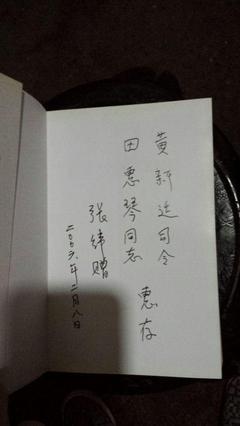 黄新廷司令
田惠琴同志
惠存
张纬赠
二〇〇六年二月八日